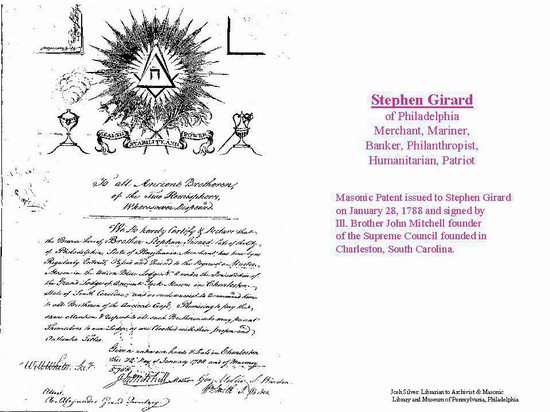 HEALTH STABILITY AND POWER
To all Ancient Brethren,
of the Two Hemispheres,
Wheresoever Dispersed
We do hereby Certify & declare that
the Bearer hereof Brother Stephen Girard late of the City
of Philadelphia, State of Pennsylvania Merchant has been
Regularly Entered, Passed and Raised to the Degree of a Master
Mason in the Union Blue Lodge No. 8 under the Jurisdiction of
the Grand Lodge of Ancient York Masons in Charleston
State of South Carolina, and as such we wish to recommend him
to all Brethren of the Ancient Craft, Promising to pay the
same attention & respect to all such Brethren who may present
Themselves to our Lodge, as are Cloathed with their proper and
Authentic Titles.
Given under our hands & Seals in Charleston
this 28th Day of January 1788 and of Masonry
5788
Will White Sec.
Jno Mitchell Master
Warden
Attest
Alexander Grand Secretary
Stephen Girard
of Philadelphia
Merchant, Mariner,
Banker, Philanthropist,
Humanitarian, Patriot
Masonic Patent issued to Stephen Girard
on January 28, 1788 and signed by
Ill. Brother John Mitchell founder
of the Supreme Council founded in
Charleston, South Carolina.
Josh Silver: Librarian to Archivist & Masonic
Library and Museum of Pennsylvania, Philadelphia